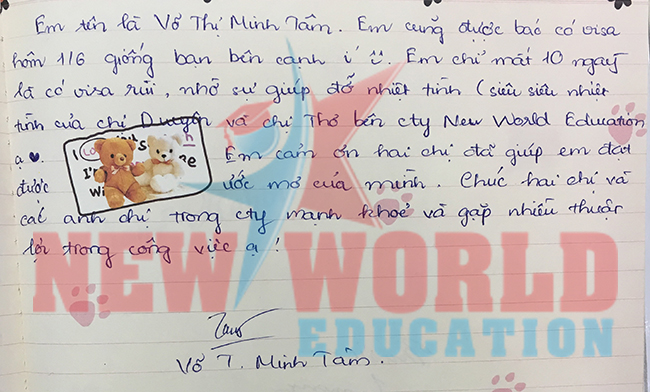 Em tên là Võ Thị Minh Tâm. Em cũng được báo có visa
hôm 1/6 giống bạn bên cạnh í. Em chỉ mất 10 ngày
là có visa rùi, nhờ sự giúp đỡ nhiệt tình (siêu siêu nhiệt
tình của chị Duyên và chị Thơ bên cty New World Education
ạ ♥. Em cảm ơn hai chị đã giúp em đạt
được ước mơ của mình. Chúc hai chị và
các anh chị trong cty mạnh khoẻ và gặp nhiều thuận
lợi trong công việc ạ!
NEW WORLD
EDUCATION
Võ T. Minh Tâm.